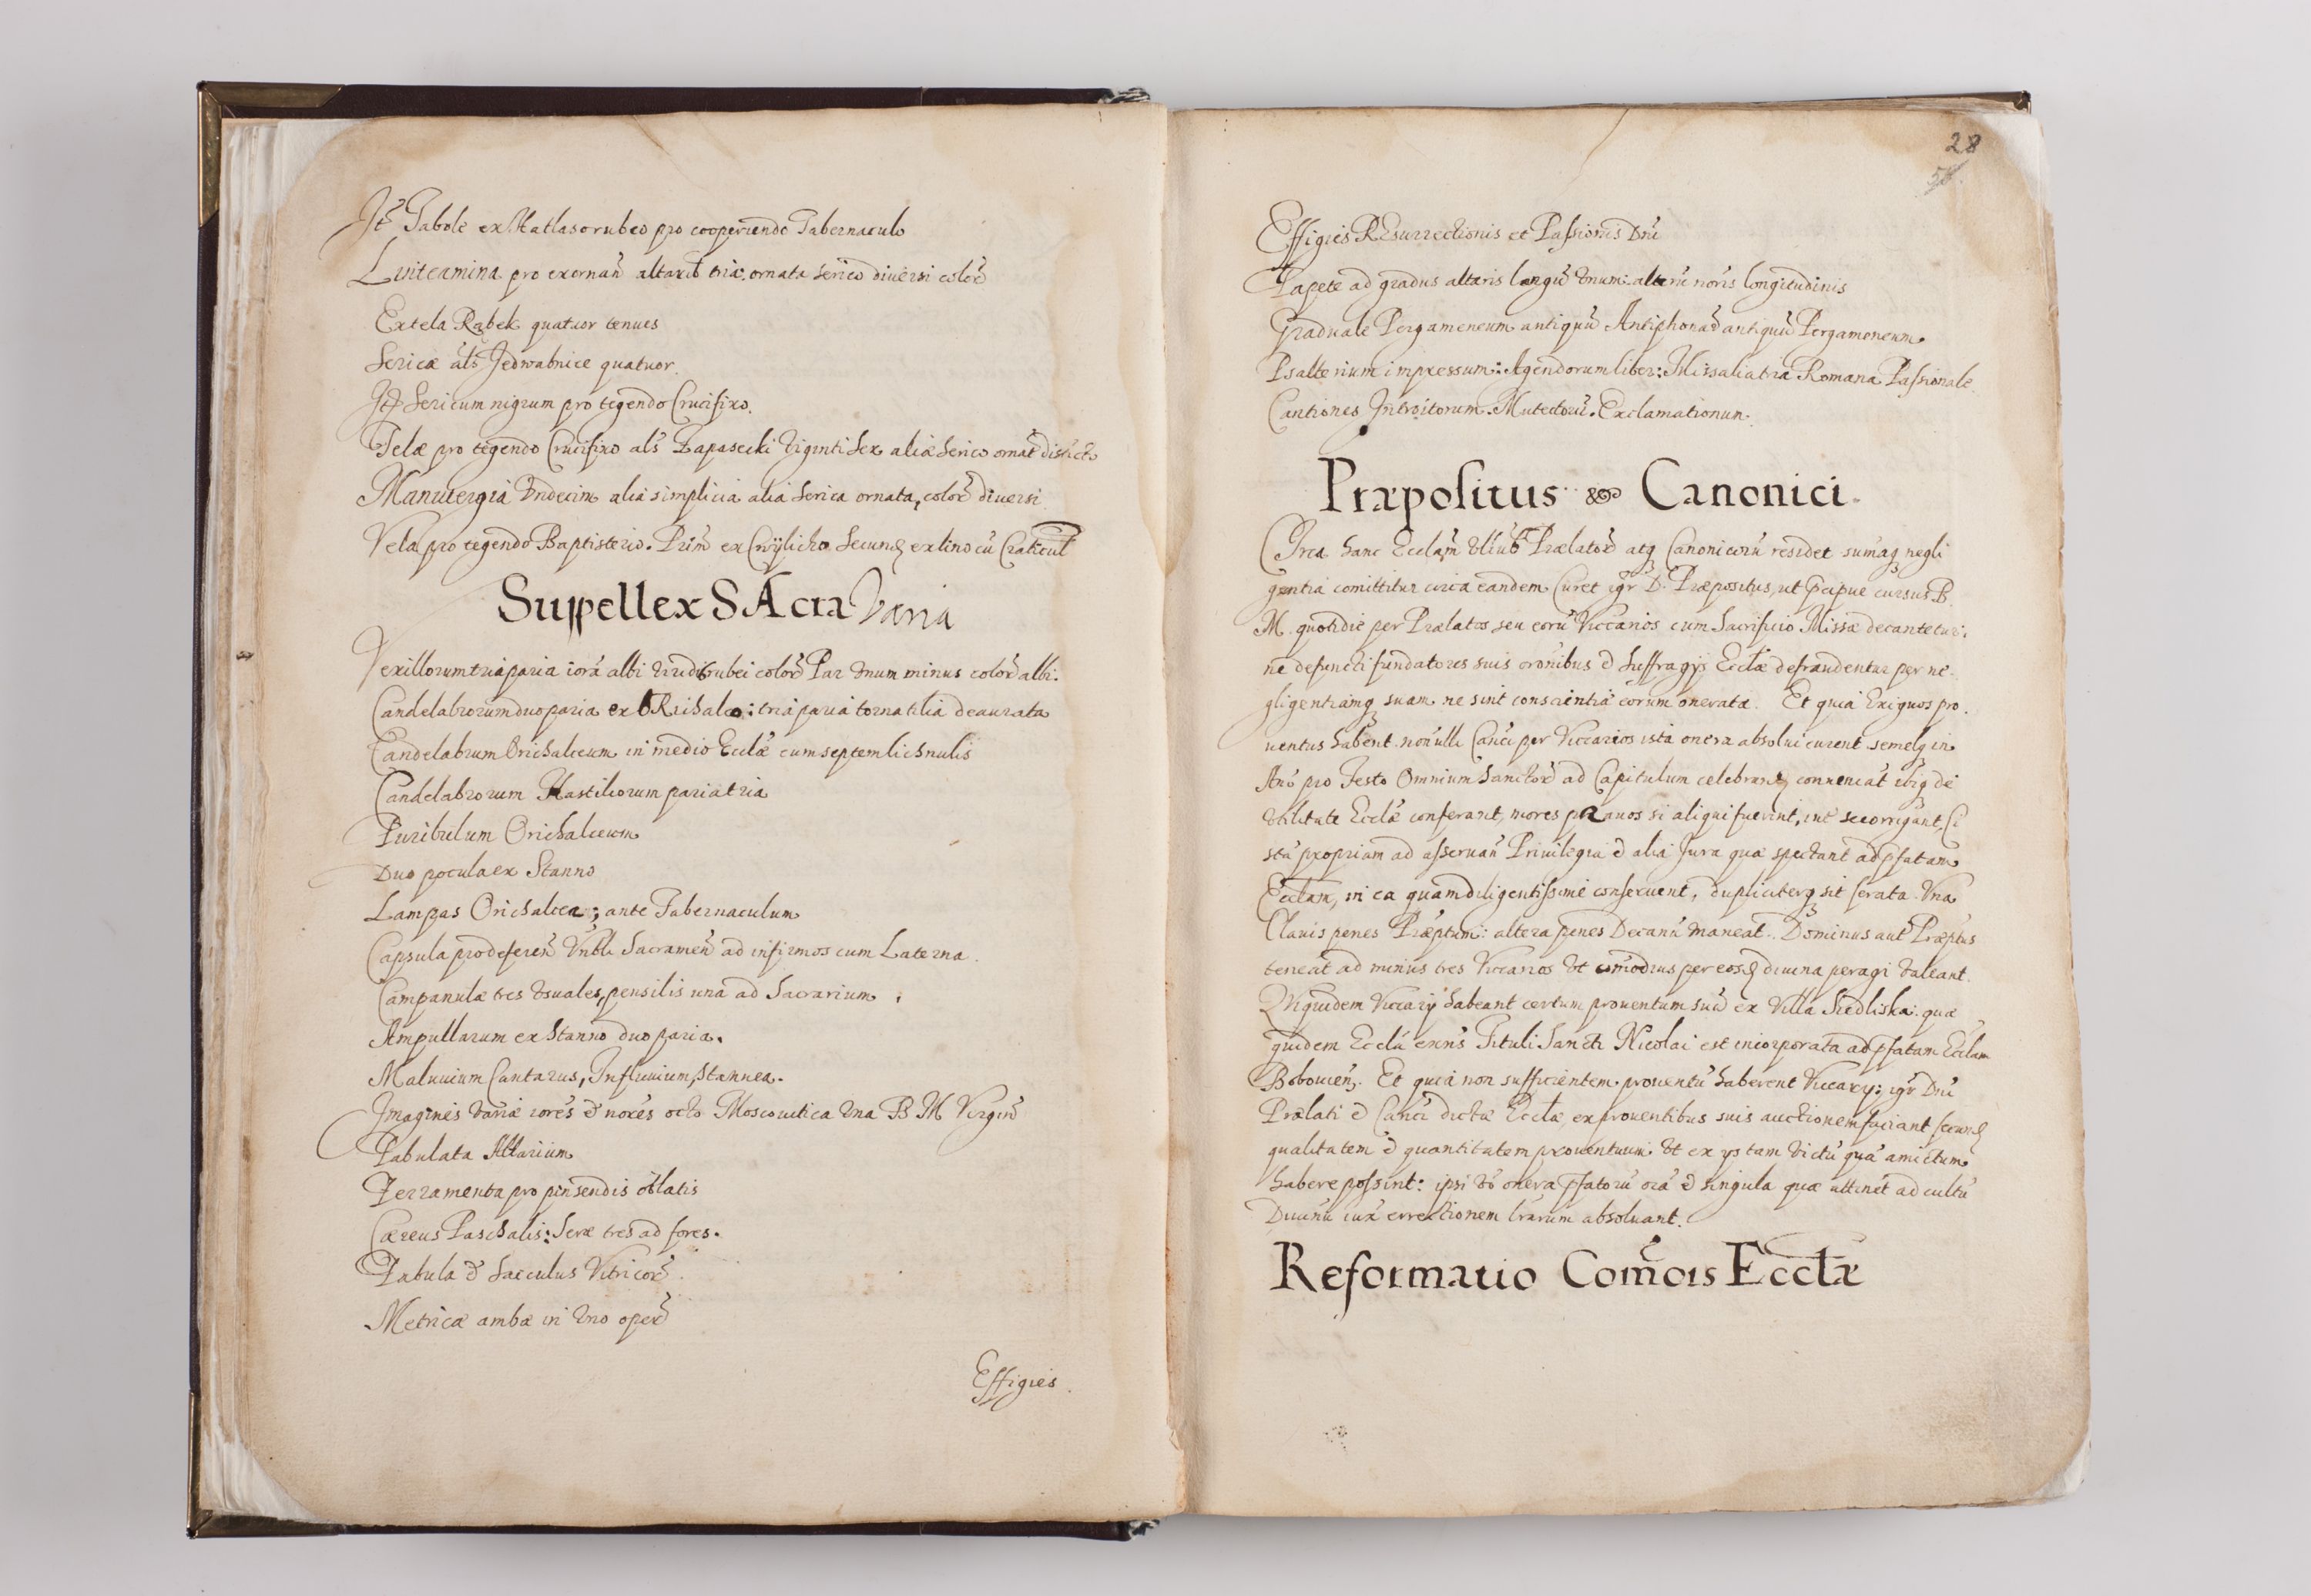 Itẽ Tabolè ex Hatlaso rubeo pro cooperiendo Tabernaculo
Linteamina pro exornañ altarib tria, ornata serico diuersi coloꝝ
Ex tela Rąbek quatuor tenues
Sericæ als Jedwabnice quatuor.
Itẽ Sericum nigrum pro tegendo Crucifixo.
Telæ pro tegendo Crucifixo als Zapasecki Viginti sex aliæ serico ornat
Manutergia Vndecim alia simplicia alia serica ornata, coloꝝ diuersi
Vela pro tegendo Baptisterio. Prim̃ ex Cwylicho Secund ex lino cũ Craticul
Suppellex SAcra Varia
Vexillorum tria paria iora albi viridi rubei coloꝝ Par vnum minus coloꝝ albi.
Candelabrorum duo paria ex ORichalco: tria paria tornatilia deaurata
Candelabrum Orichalceum in medio Ecclæ cum septem lichnulis
Candelabrorum Hastiliorum paria tria
Turibulum Orichalceum
Duo pocula ex Stanno
Lampas Orichalcea; ante Tabernaculum
Capsula pro deferen Vnbli Sacrameñ ad infirmos cum Laterna.
Campanulæ tres vsuales, pensilis una ad Sacrarium.
Ampullarum ex Stanno duo paria.
Maluuium Cantarus, Infuuium, Stannea.
Imagines variæ iores & nores octo Moscouitica vna B M Virgiñ
Tabulata Altarium
Ferramenta pro pinsendis oblatis
Cæreus Paschalis: Seræ tres ad fores.
Tabula & Sacculus Vitricoꝝ.
Metricæ ambæ in vno opere
Effigies.
28
Effigies REsurrectionis et Passionis Dñi
Tapete ad gradus altaris largũ vnum alterũ noris longitudinis
Graduale Pergameneum antiquũ Antiphonaꝝ antiquũ Pergameneum
Psalterium impressum: Agendorum liber: Missalia tria Romana Passionale.
Cantiones Introitorum. Mutectorũ. Exclamationum.
Præpositus & Canonici.
Circa hanc Ecclam Prælatoꝝ atq Canonicorũ residet sumaq negli
gentia comittitur circa eandem Curet igr D. Præpositus, ut p̃cipue cursus B.
M. quotidie per Prælatos seu eorũ Viccarios cum Sacrificio Missæ decantetur:
ne defuncti fundatores suis oronibus & Suffragijs Ecclæ defraudentur per ne
gligentiamq suam ne sint conscientiæ eorum oneratæ. Et quia Exiguos pro
uentus habent nonulli Canci per Viccarios ista onera absolui curent semelq in
Ano pro Festo Omnium Sanctoꝝ ad Capitulum celebrand conueneat ibiq de
vtilitate Ecclæ conferant, mores prauos si aliqui fuerint, inẽ se corrigant, Ci
stã propriam ad asseruañ Priuilegia & alia Jura quæ spectant ad p̃fatam
Ecclam, in ea quam diligentissime conseruent, dupliciterq sit serata. Vna
Clauis penes Præptum: altera penes Decanũ maneat. Dominus aut Præptus
teneat ad minus tres Viccarios vt comodius per eos diuina peragi valeant.
Qui quidem Viccarij habeant certum prouentum suũ ex Villa Siedliska: quæ
quidem Ecclã Tituli Sancti Nicolai est incorporata ad p̃fatam Ecclam
Bobouień. Et quia non sufficientem prouentũ haberent Viccary: igr Dñi
Prælati & Canci dictæ Ecclæ ex prouentibus suis auctionem faciant secund
qualitatem & quantitatem prouentuum vt ex ys tam victũ quã amictum
habere possint: ipsi vò onera p̃fatorũ oia & singula quæ attinet ad cultũ
Diuinũ iuxa errectionem lrarum absoluant.
Reformatio Comõis Ecclæ